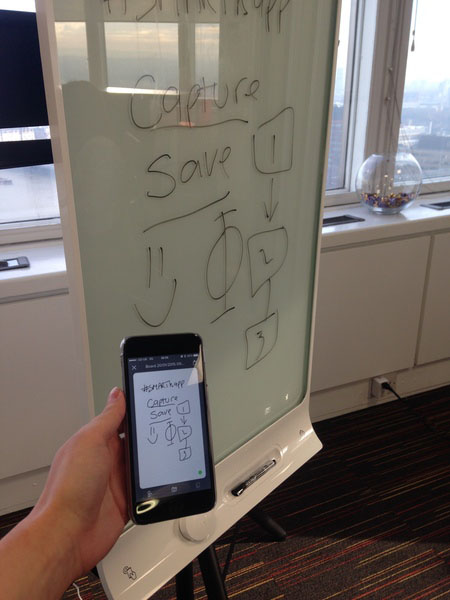 #SMARTkapp
Capture
1
Save
2
3
#SMARTkapp
Capture
Save
1
2
3